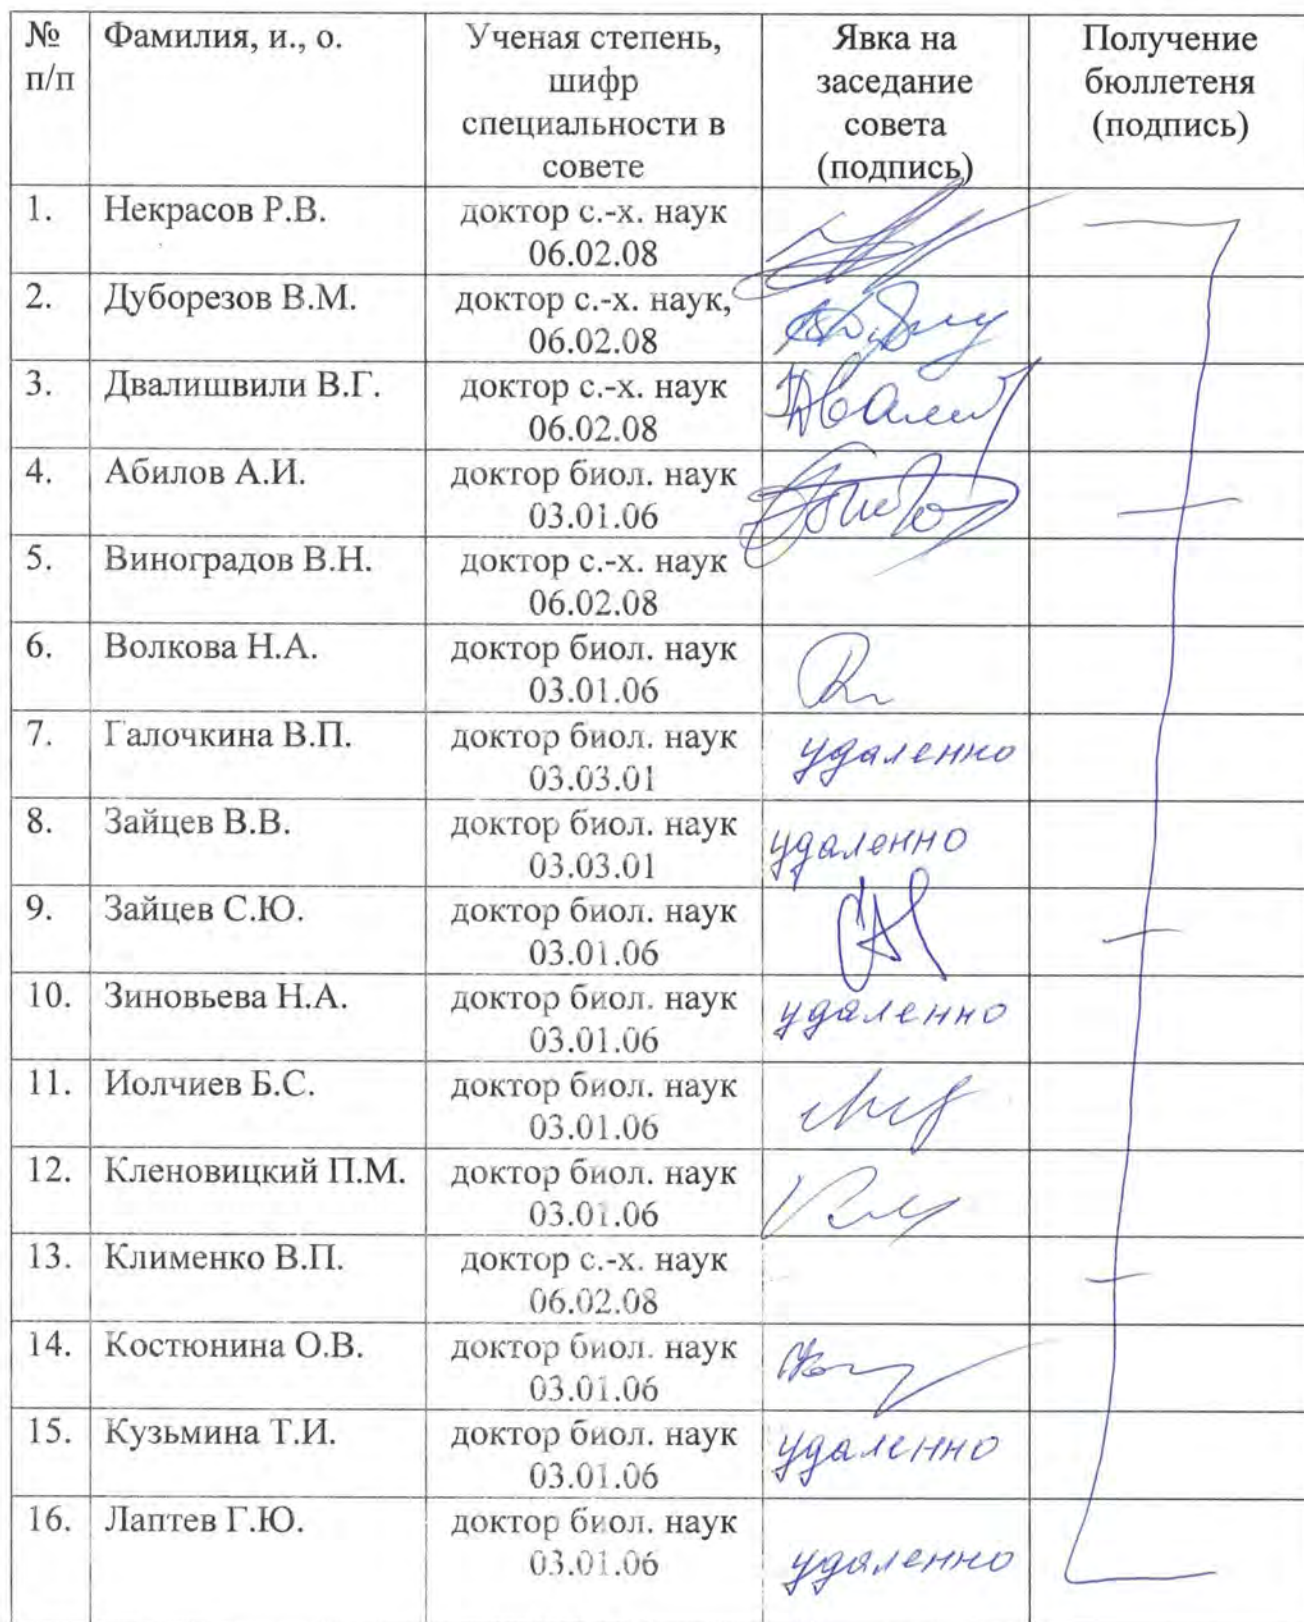 № п/п
Фамилия, и., о.
Ученая степень,
шифр
специальности в
совете
Явка на
заседание
совета
(подпись)
Получение
бюллетеня
(подпись)
1. Некрасов Р.В. доктор с.-х. наук
06.02.08
2. Дуборезов В.М. доктор с.-х. наук,
06.02.08
3. Двалишвили В.Г. доктор с.-х. наук
06.02.08
4. Абилов А.И. доктор биол. наук
03.01.06
5. Виноградов В.Н. доктор с.-х. наук
06.02.08
6. Волкова Н.А. доктор биол. наук
03.01.06
7. Галочкина В.П. доктор биол. наук удаленно
03.03.01
8. Зайцев В.В. доктор биол. наук удаленно
03.03.01
9. Зайцев С.Ю. доктор биол. наук
03.01.06
10. Зиновьева Н.А. доктор биол. наук удаленно
03.01.06
11. Иолчиев Б.С. доктор биол. наук
03.01.06
12. Кленовицкий П.М. доктор биол. наук
03.01.06
13. Клименко В.П. доктор с.-х. наук
06.02.08
14. Костюнина О.В. доктор биол. наук
03.01.06
15. Кузьмина Т.И. доктор биол. наук удаленно
03.01.06
16. Лаптев Г.Ю. доктор биол. наук
03.01.06 удаленно